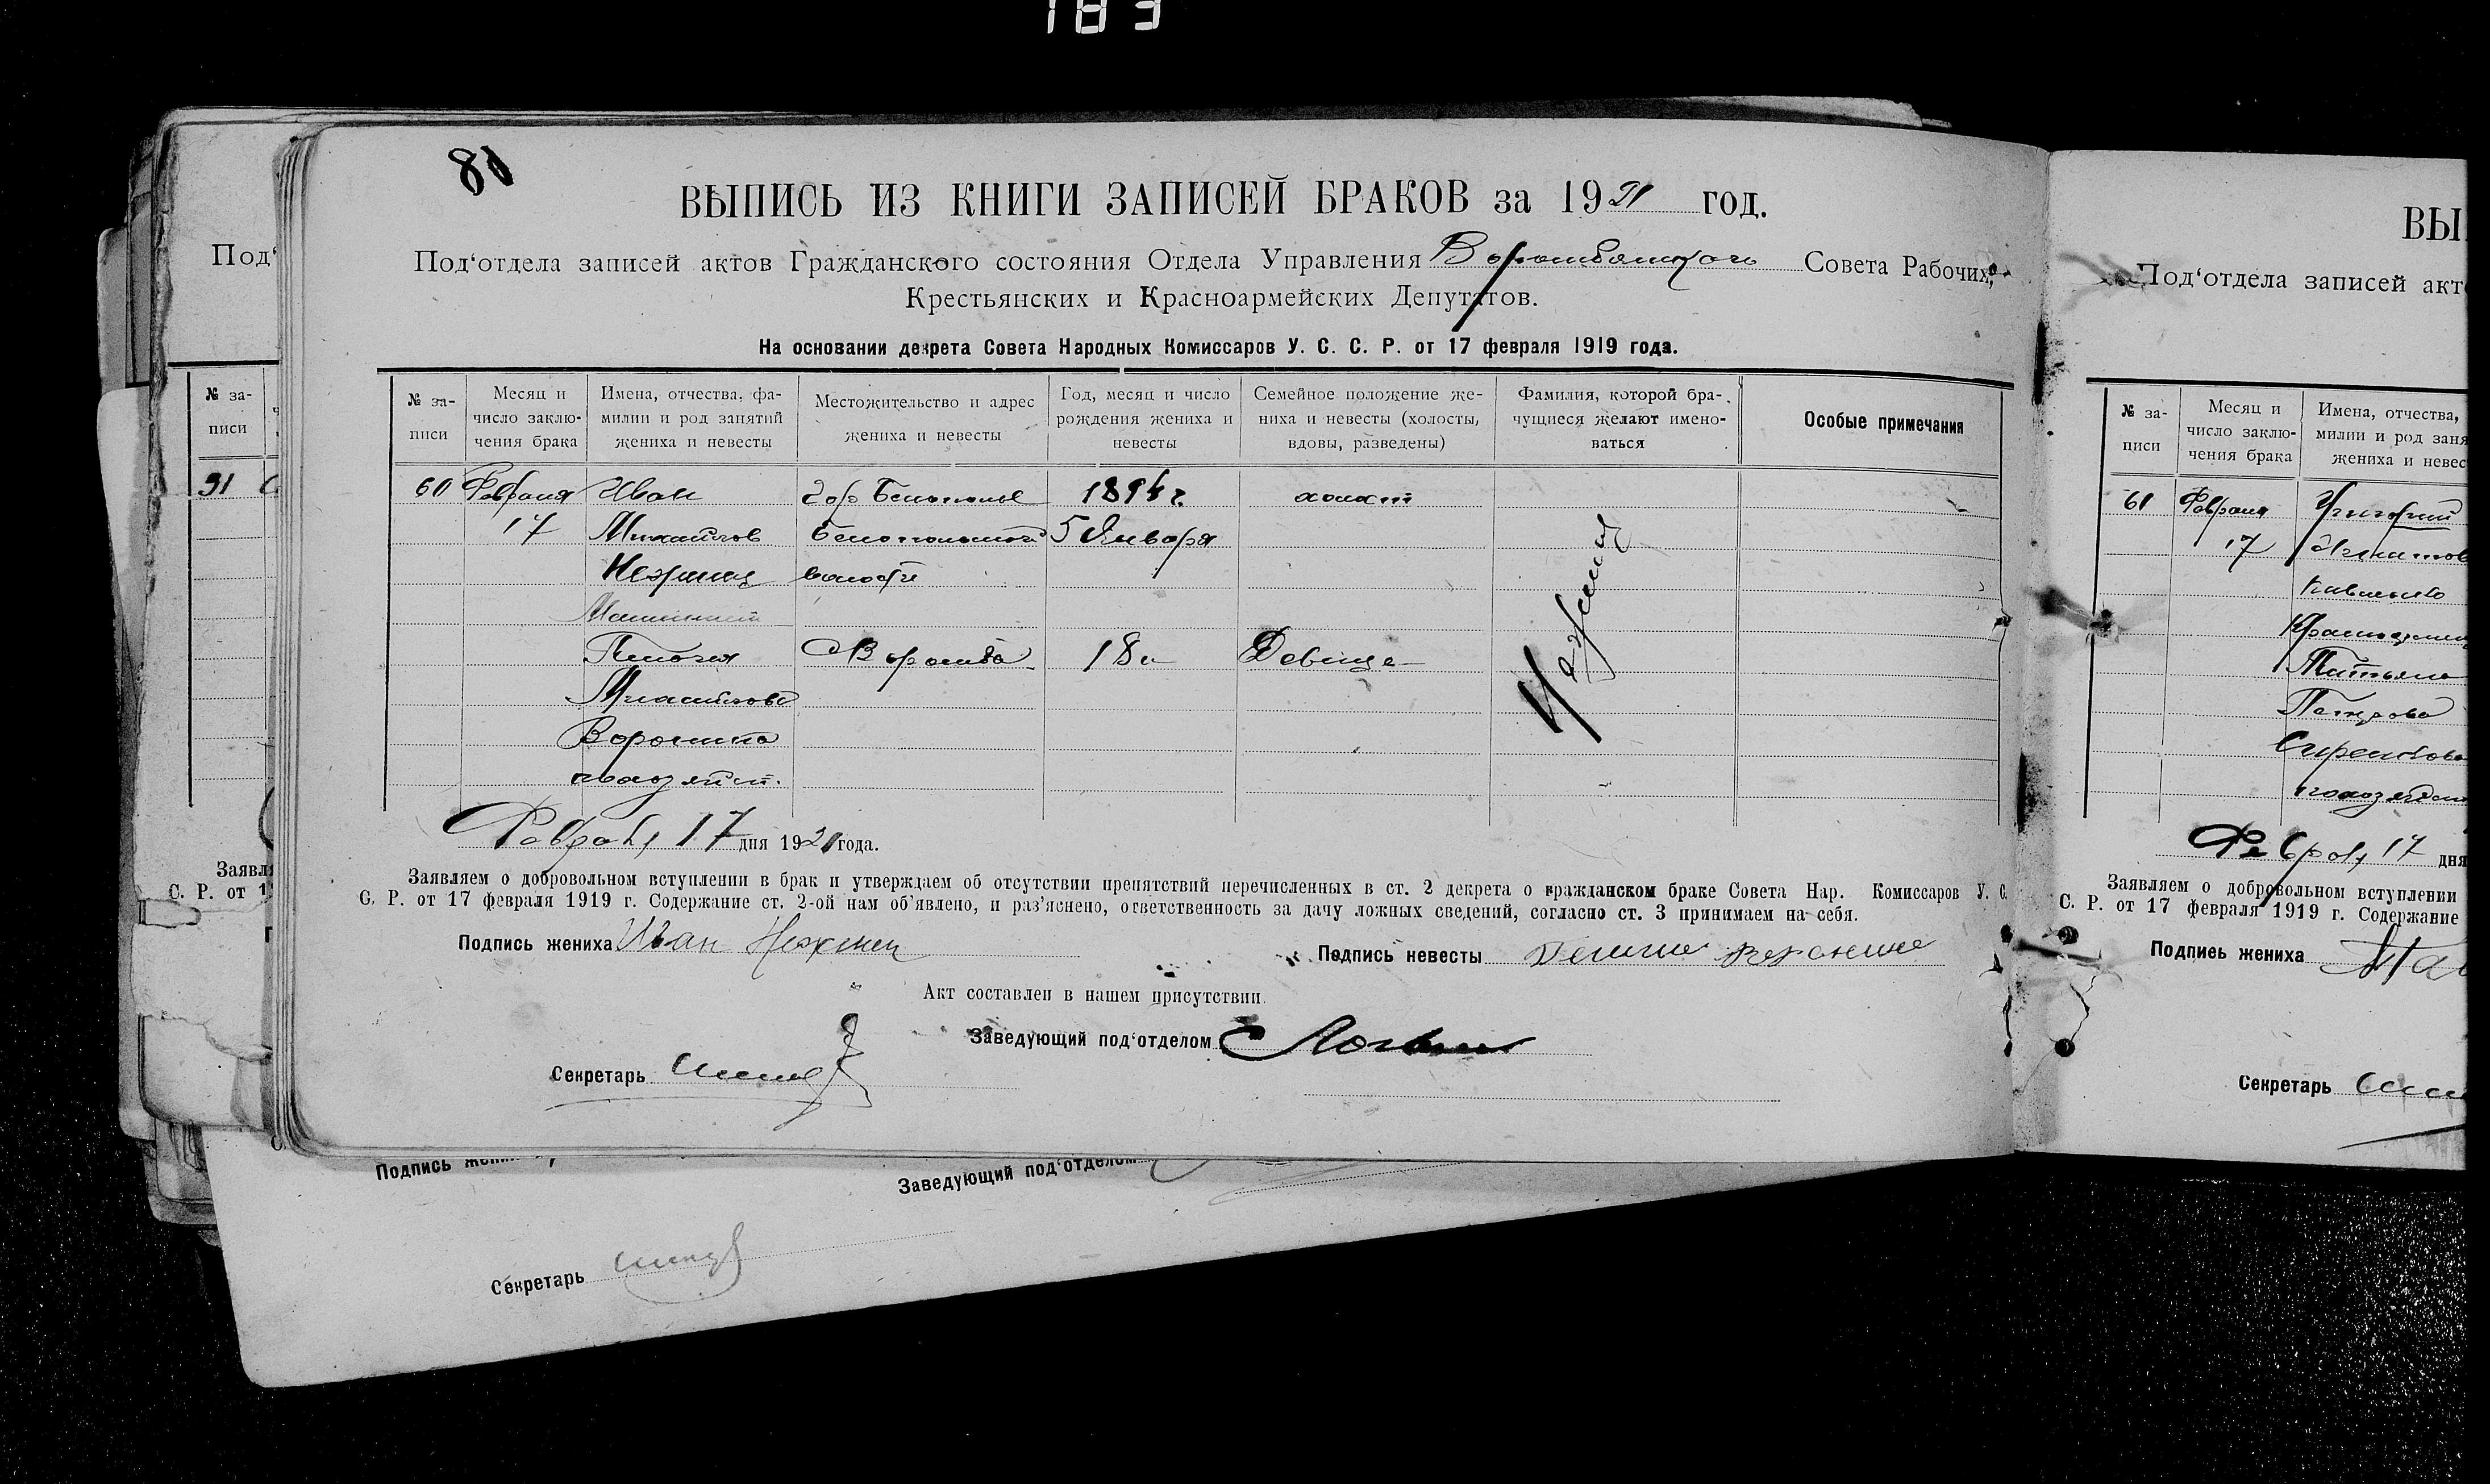 183
80
ВЫПИСЬ ИЗ КНИГИ ЗАПИСЕЙ БРАКОВ за 1921 год.
Под‘отдела записей актов Гражданского состояния Отдела Управления Ворожбянского Совета Рабочих,
Крестьянских и Красноармейских Депутатов.
На основании декрета Совета Народных Комиссаров У. С. С. Р. от 17 февраля 1919 года.
№ за- писи
Месяц и число заклю- чения брака
Имена, отчества, фа- милии и род занятий жениха и невесты
Местожительство и адрес жениха и невесты
Год, месяц и число рождения жениха и невесты
Семейное положение же- ниха и невесты (холосты, вдовы, разведены)
Фамилия, которой бра- чущиеся желают имено- ваться
Особые примечания
60 Февраля Иван гор Белополье холост
17 Михайлов 5 Января
Нежинец волости
Пелагея Ворожба 18 Девица
Михайлова
Воронина
Февраля 17 дня 1921 года.
Заявляем о добровольном вступлении в брак и утверждаем об отсутствии препятствий перечисленных в ст. 2 декрета о гражданском браке Совета Нар. Комиссаров У. С.
С. Р. от 17 февраля 1919 г. Содержание ст. 2-ой нам об’явлено, и раз’яснено, ответственность за дачу ложных сведений, согласно ст. 3 принимаем на себя.
Подпись жениха Иван Нежинец
Подпись невесты
Акт составлен в нашем присутствии.
Заведующий под‘отделом
Секретарь
Под‘
№ за- писи
91
Заявля
С. Р. от 1
Подпись
Заведующий под‘отделом
Секретарь
ВЫ
Под‘отдела записей акт
№ за- писи
Месяц и число заклю- чения брака
Имена, отчества, милии и род заня жениха и невес
61 Февраля Григорий
17
Татьяна
Февраля 17 дня
Заявляем о добровольном вступлении
С. Р. от 17 февраля 1919 г. Содержание
Подпись жениха
Секретарь